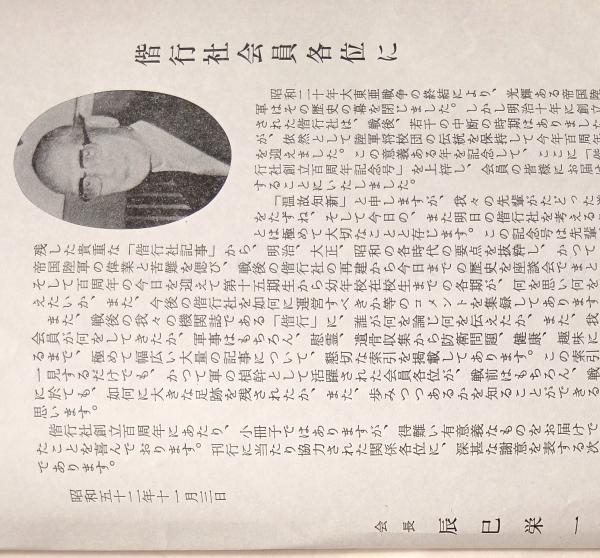 偕行社会員各位に
昭和二十年大東亜戦争の終結により、光輝ある帝国陸
軍はその歴史の幕を閉じました。しかし明治十年に創立
された偕行社は、戦後、若干の中断の時期はありました
が、依然として陸軍将校団の伝統を保持して今年百周年
を迎えました。この意義ある年を記念して、ここに「偕
行社創立百周年記念号」を上梓し、会員の皆様にお届け
することにいたしました。
「温故知新」と申しますが、我々の先輩がたどった
をたずね、そして今日の、また明日の偕行社を考える
とは極めて大切なことと存じます。この記念号は先輩
残した貴重な「偕行社記事」から、明治、大正、昭和の各時代の要点を抜粋し、かつて
帝国陸軍の偉業と苦難を偲び、戦後の偕行社の再建から今日までの歴史を座談会でまと
そして百周年の今日を迎えて第十五期生から幼年校在校生までの各期が、何を思い何を
えたいか、また、今後の偕行社を如何に運営すべきか等のコメントを集録してあります
また、戦後の我々の機関誌である「偕行」に、誰が何を論じ何を伝えたか、また、我
会員が何をしてきたか、軍事はもちろん、慰霊、遺骨収集から防衛問題、健康、趣味に
るまで、極めて幅広い大量の記事について、懇切な索引を掲載してあります。この索引
一見するだけでも、かつて軍の楨幹として活躍された会員各位が、戦前はもちろん、戦
に於ても、如何に大きな足跡を残されたか、また、歩みつつあるかを知ることができる
思います。
偕行社創立百周年にあたり、小冊子ではありますが、得難い有意義なものをお届けで
たことを喜んでおります。刊行に当たり協力された関係各位に、深甚な謝意を表する次
であります。
昭和五十二年十一月三日
会長　辰巳栄一